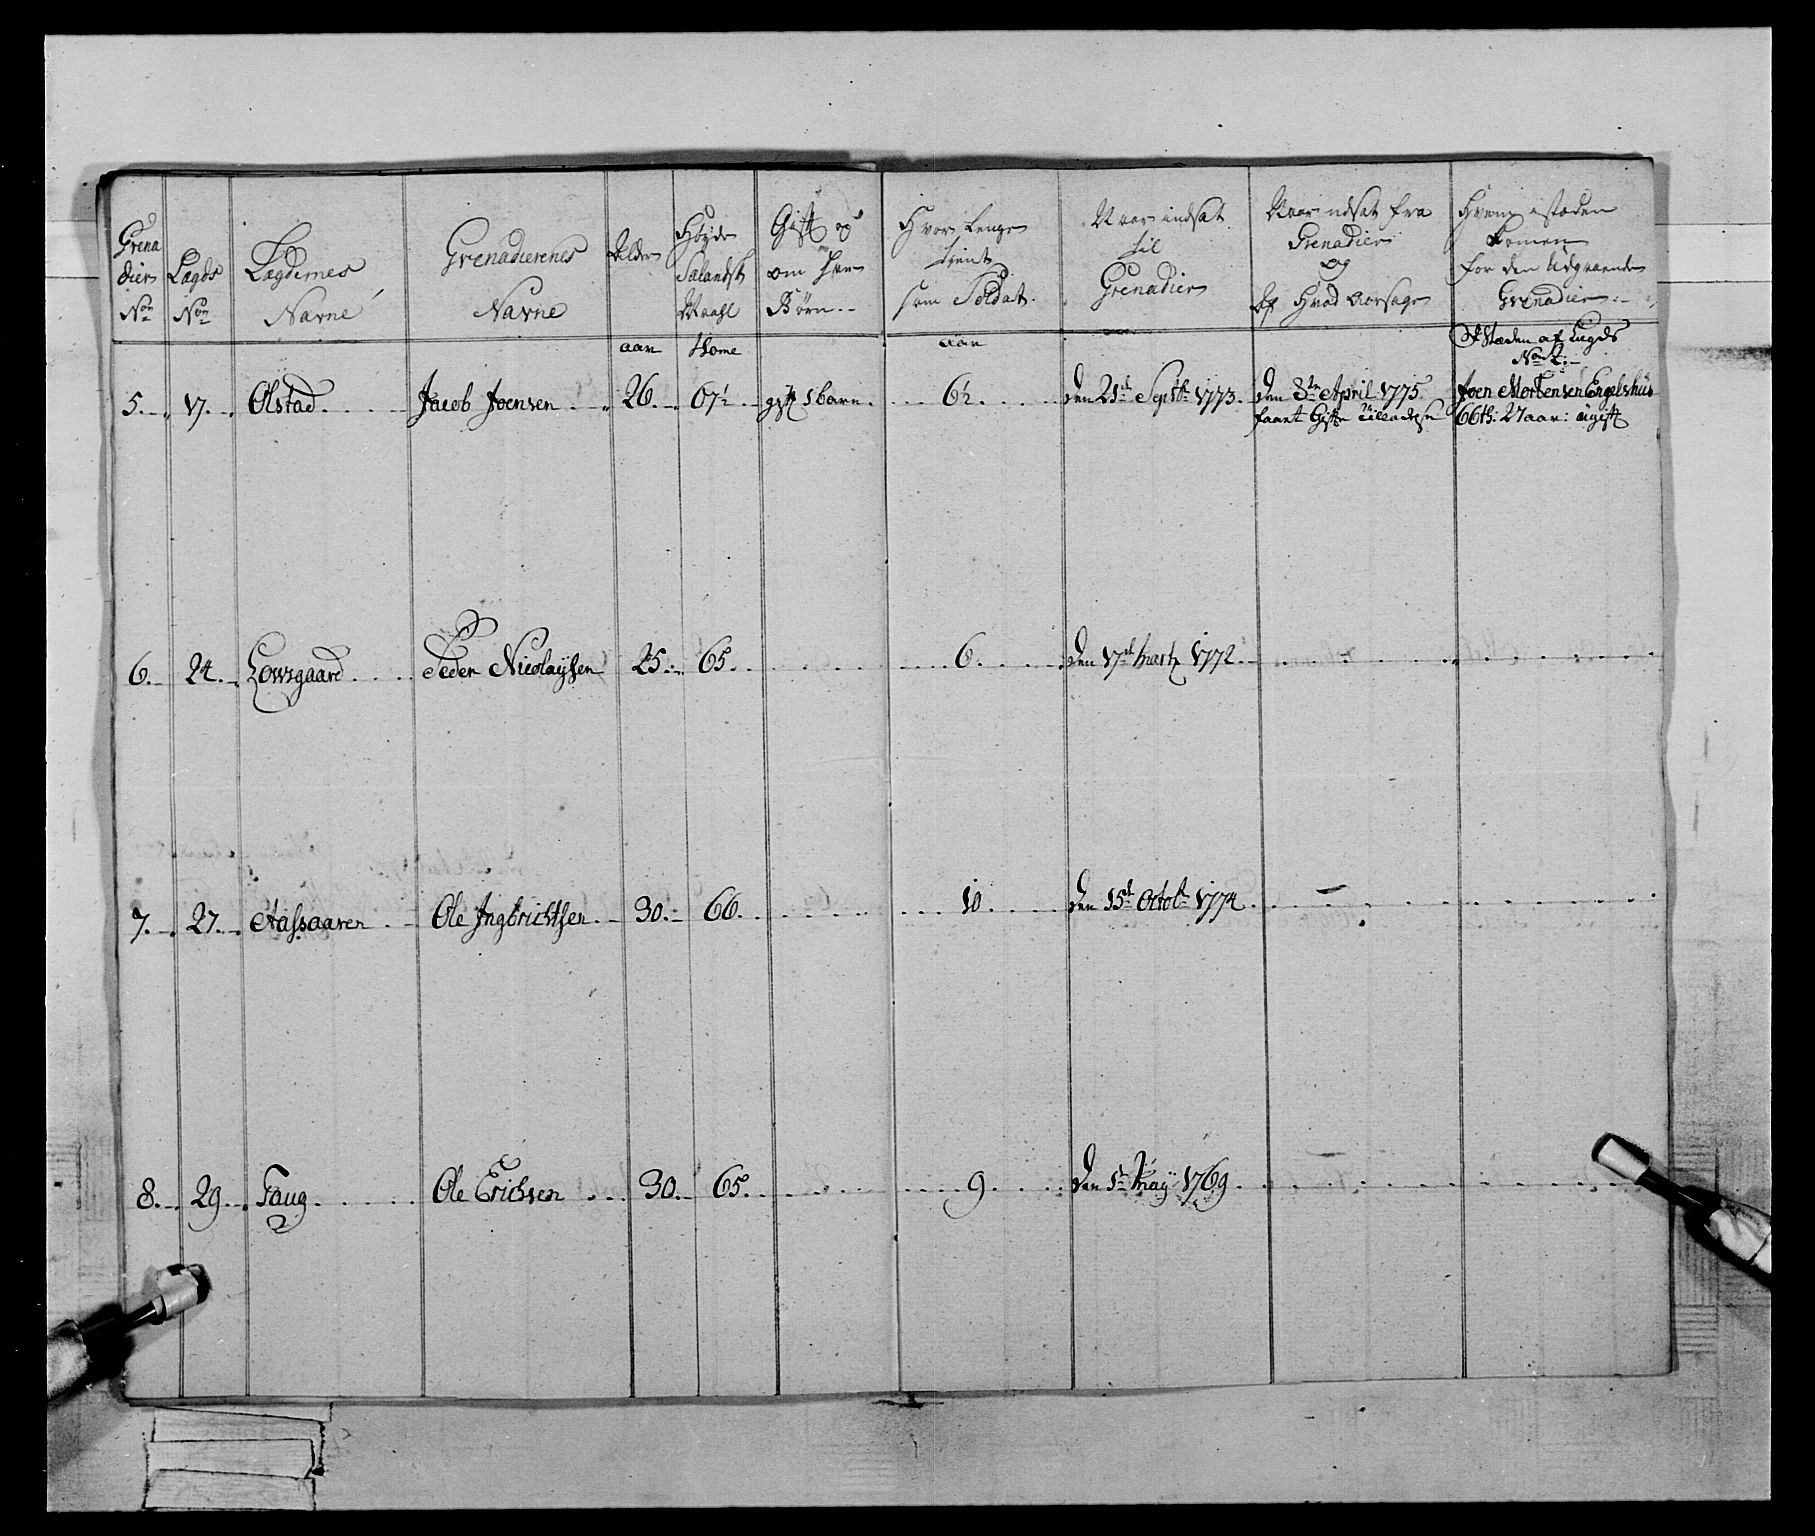 Grena
dier
Non
Lægds
Non
Lægdernes
Navne
Grenadierenes
Navne
Alder
Høyde
Salandsk
Maahl
Gift og
om har
Børn
Hvor Lenge
tient
som Soldat
Naar indsat
til
Grenadier
Naar udsat fra
Grenadier
og
af Hvad Aarsage
Hvem i stæden
komen
for den Udgaaende
Grenadier
aar
aar
Stæden af Lægds
5. 17. Olstad Jacob Joensen 26 gift 1 barn 6½ den 21de Septbr 1773. den 8de April 1775 Joen Mortensen Engelshus
faaet 66 t: 27 aar: ugift
6. 24. Lowsgaard Peder Nicolaysen 25. 65. 6. den 17de Martz 1772.
7. 27. Aassaaren Ole Ingbrichtsen 30. 66. 10. den 15de Octobr 1774.
8. 29. Faug Ole Erichsen 30. 65. 9. den 1te May 1769.